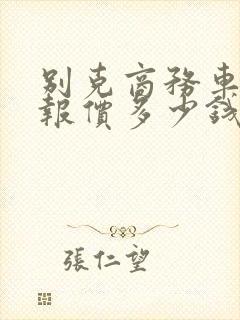 别克商務車
報價多少錢
張仁望